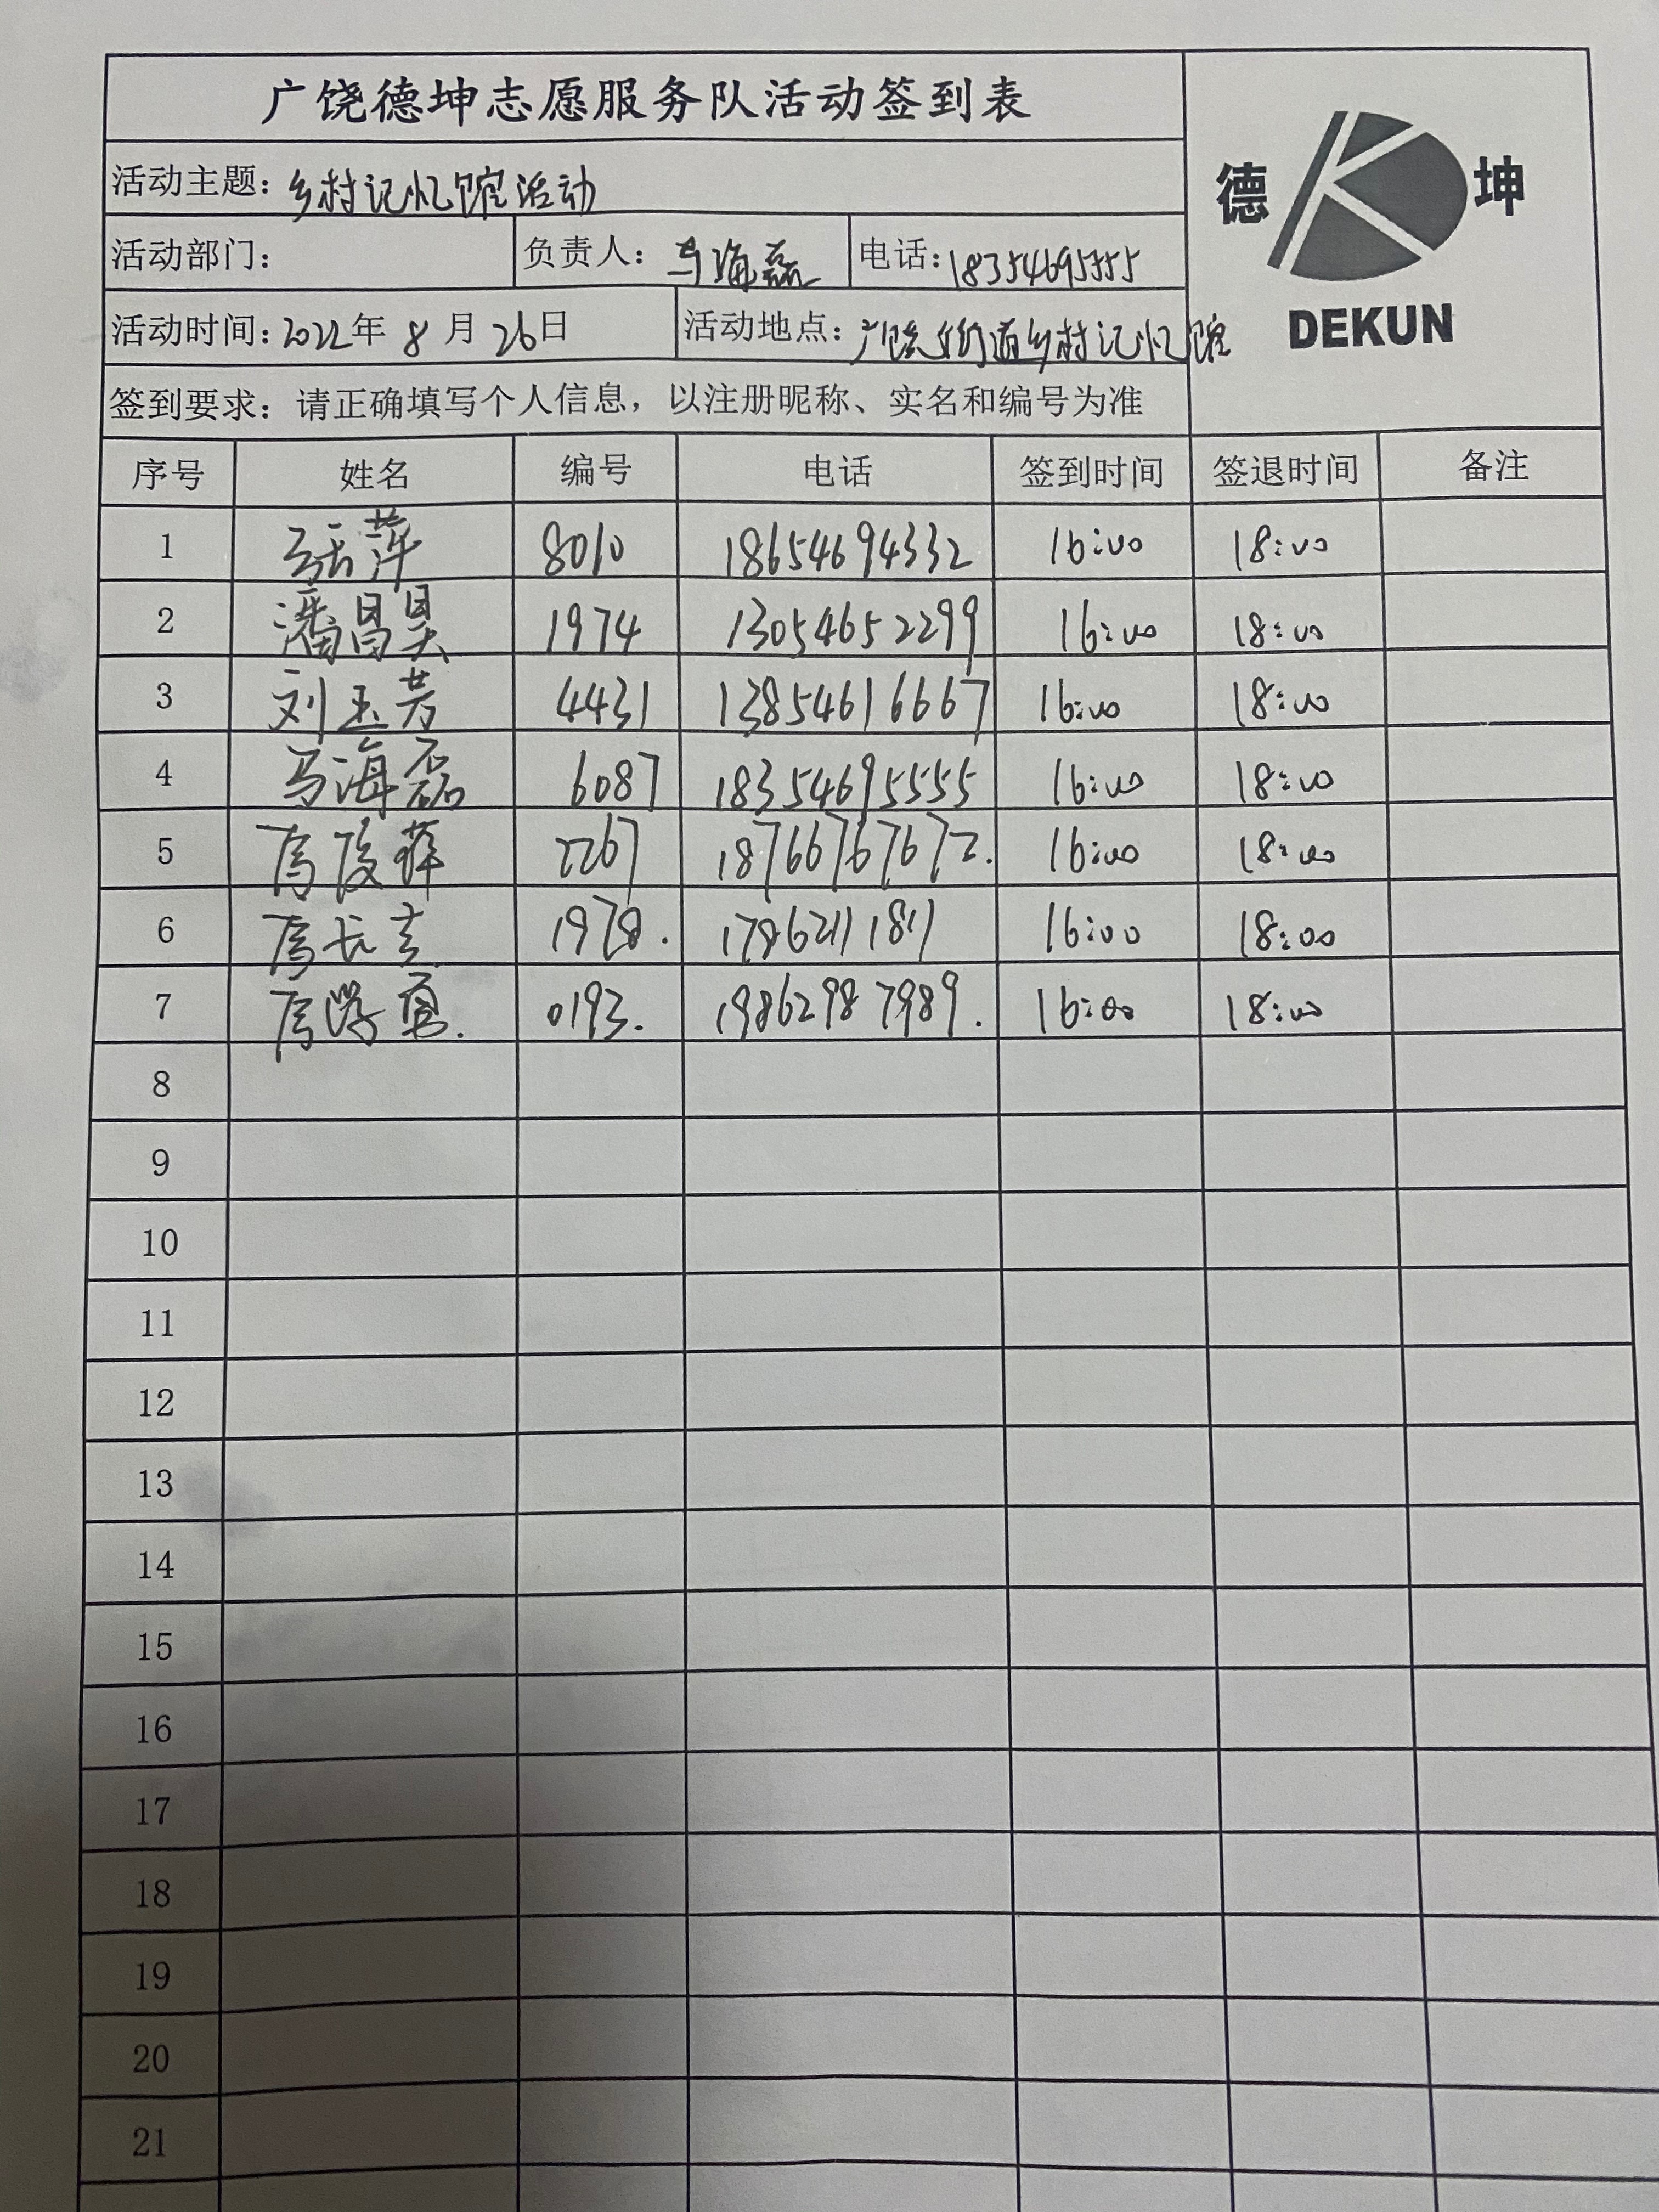 广饶德坤志愿服务队活动签到表
德 坤
DEKUN
活动主题：乡村记忆馆活动
活动部门： 负责人：马海磊 电话：18354695555
活动时间：2022年 8月 26日 活动地点：广饶街道乡村记忆馆
签到要求：请正确填写个人信息，以注册昵称、实名和编号为准
序号 姓名 编号 电话 签到时间 签退时间 备注
1 张萍 8010 18654694332 16:00 18:00
2 潘昌昊 1974 13054652299 16:00 18:00
3 刘玉芳 4431 13854616667 16:00 18:00
4 马海磊 6087 18354695555 16:00 18:00
5 2267 18766767672. 16:00 18:00
6 1978. 17862111811 16:00 18:00
7 0193. 19862987989. 16:00 18:00
8
9
10
11
12
13
14
15
16
17
18
19
20
21